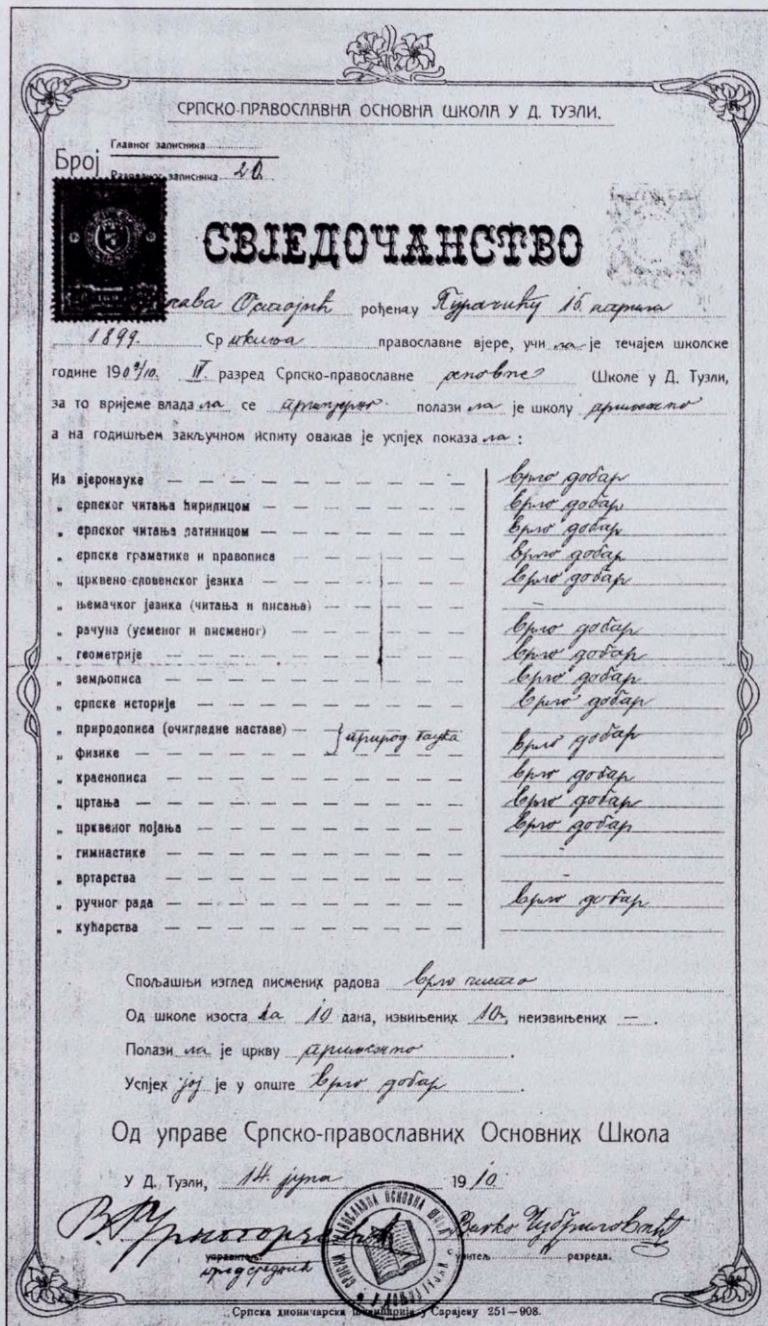 СРПСКО-ПРАВОСЛАВНА ОСНОВНА ШКОЛА У Д. ТУЗЛИ.
Број Главног записника
Разредног записника 20.
СВЈЕДОЧАНСТВО
рођена у Пурачићу 15. марта
1899. Српкиња православне вјере, учила је течајем школске
године 1909/10. IV. разред Српско-православне основне Школе у Д. Тузли,
за то вријеме владала се примјерно полазила је школу приљежно
а на годишњем закључном испиту овакав је успјех показала:
Из вјеронауке — врло добар
„ српског читања ћирилицом — врло добар
„ српског читања латиницом — врло добар
„ српске граматике и правописа — врло добар
„ црквено-словенског језика — врло добар
„ њемачког језика (читања и писања) — –
„ рачуна (усменог и писменог) — врло добар
„ геометрије — врло добар
„ земљописа — врло добар
„ српске историје — врло добар
„ природописа (очигледне наставе) — } природ. наука врло добар
„ физике —
„ краснописа — врло добар
„ цртања — врло добар
„ црквеног појања — врло добар
„ гимнастике — –
„ вртарства — –
„ ручног рада — врло добар
„ кућарства —
Спољашњи изглед писмених радова врло чисто
Од школе изостала 10 дана, извињених 10, неизвињених —.
Полазила је цркву приљежно.
Успјех јој је у опште врло добар.
Од управе Српско-православних Основних Школа
У Д. Тузли, 14. јуна 1910.
Васко Чубриловић
управитељ. учитељ разреда.
предсједник
Српска дионичарска штампарија у Сарајеву 251—908.